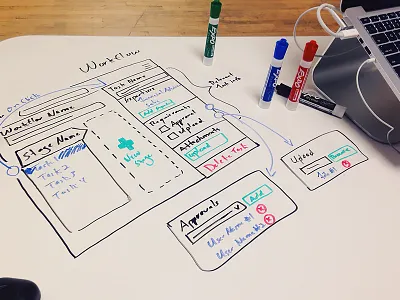 Workflow
On Click
Workflow Name
Stage Name
Task 1
Task 2
Task 3
Task Y
New
Stage
Task Name
Departure
Requirements
Approval
Upload
Attachments
Upload
Delete Task
Approvals
Add
User Name #1
User Name #2
Upload
Browse
EXPO
EXPO
EXPO